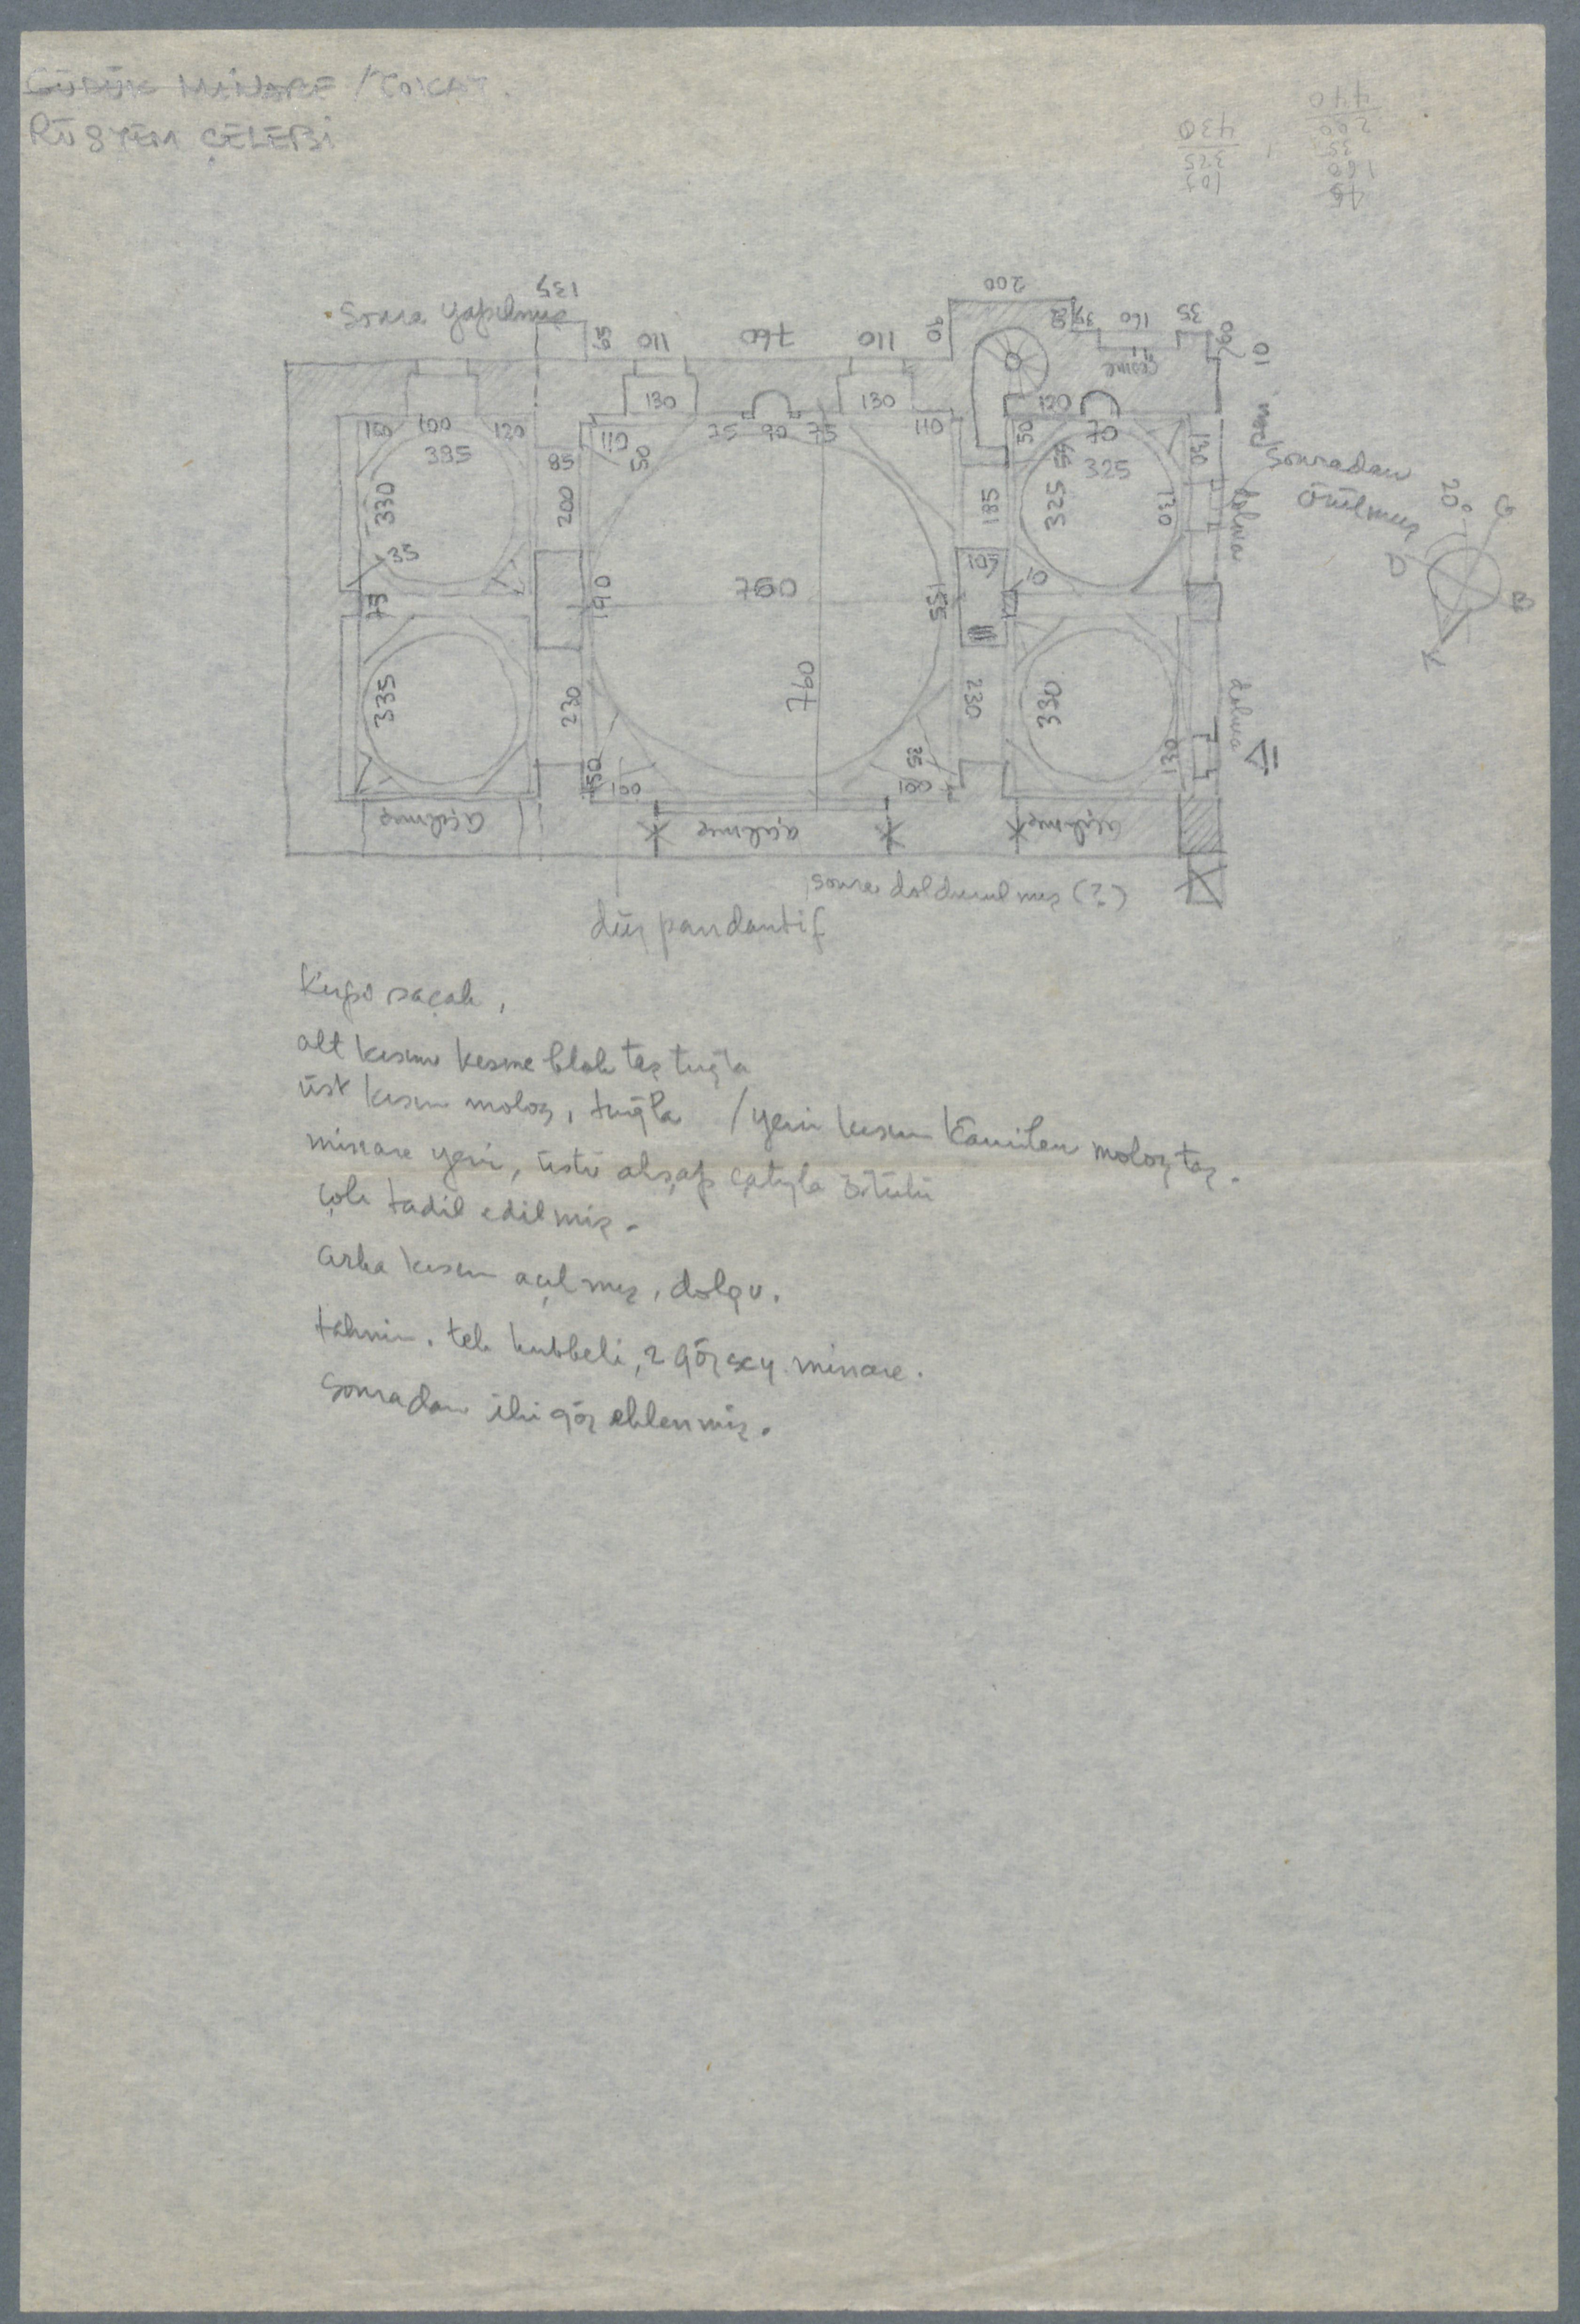 GÜDÜK MİNARE / TOKAT.
RÜSTEM ÇELEBİ
440
200
35
160
45
430
325
105
Sonra yapılmış
135
200
95 110 760 110 90
35 160 35 60 10
çeşme
130 130 120
100 120
110 50 75 90 75 110 50 70
335 85 325
330 200 185 325 130 130
Sonradan
örülmüş
dolma
20° G
D B
K
35 105 10
75 190 760 155
335 230 760 230 330 130
dolma
150 100 25 80
açılmış açılmış açılmış
sonra doldurulmuş (?)
düz pandantif
Kirpi saçak,
alt kısım kesme blok taş tuğla
üst kısım moloz, tuğla / yeni kısım kâmilen moloz taş.
minare yeni, üstü ahşap çatıyla örtülü
çok tadil edilmiş.
arka kısım açılmış, dolgu.
tahmin. tek kubbeli, 2 göz scy. minare.
Sonradan iki göz eklenmiş.